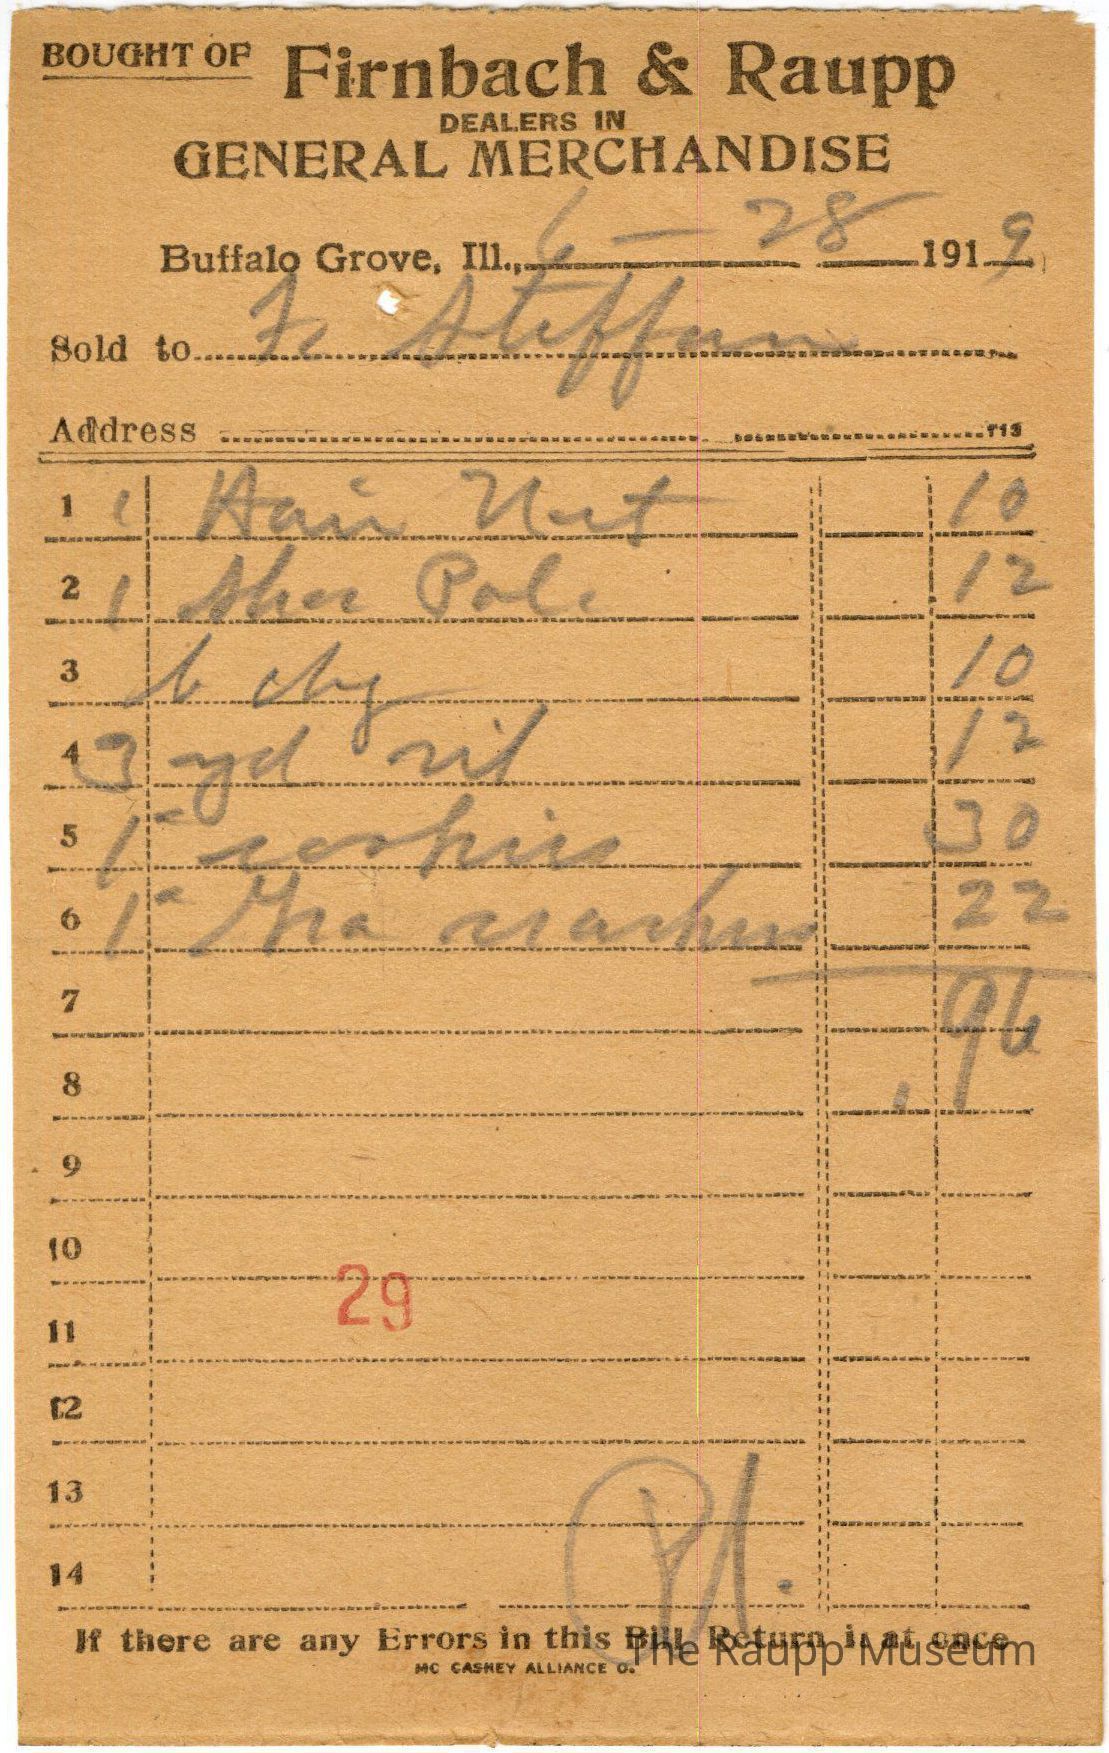 BOUGHT OF Firnbach & Raupp
DEALERS IN
GENERAL MERCHANDISE
Buffalo Grove, Ill., 6 - 28 1919
Sold to F. Steffen
Address 713
1 1 Hair Net 10
2 1 Shoe Pole 12
3 chg 10
4 3 yd 12
5 1 30
6 1 Gra 22
7 96
8
9
10
29
11
12
13
14
Pd.
If there are any Errors in this Bill Return it at once
MC CASKEY ALLIANCE O.
The Raupp Museum